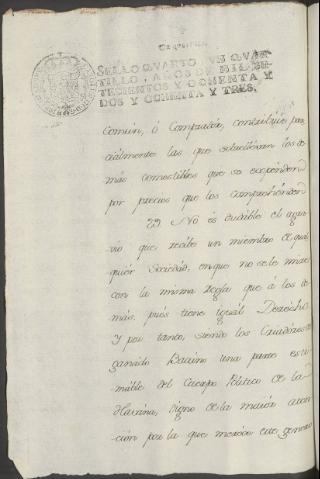 SELLO QVARTO, VN QVAR-
TILLO, AÑOS DE MIL SE-
TECIENTOS Y OCHENTA Y
DOS Y OCHENTA Y TRES.
comun, ó Comprador, contribuye par-
cialmente las que
más comestibles que se expenden
por precios que los comprehenden
29 No es dudable el agra-
vio que recibe un miembro de qual-
quier Sociedad, en que no se le mire
con la misma regla que á los de-
más, pués tiene igual Derecho
Y por tanto, siendo los Criadores de
ganado Bacuno una parte esti-
mable del Cuerpo Politico de la
Havana, digno de la maior aten-
cion por la que merece este genero